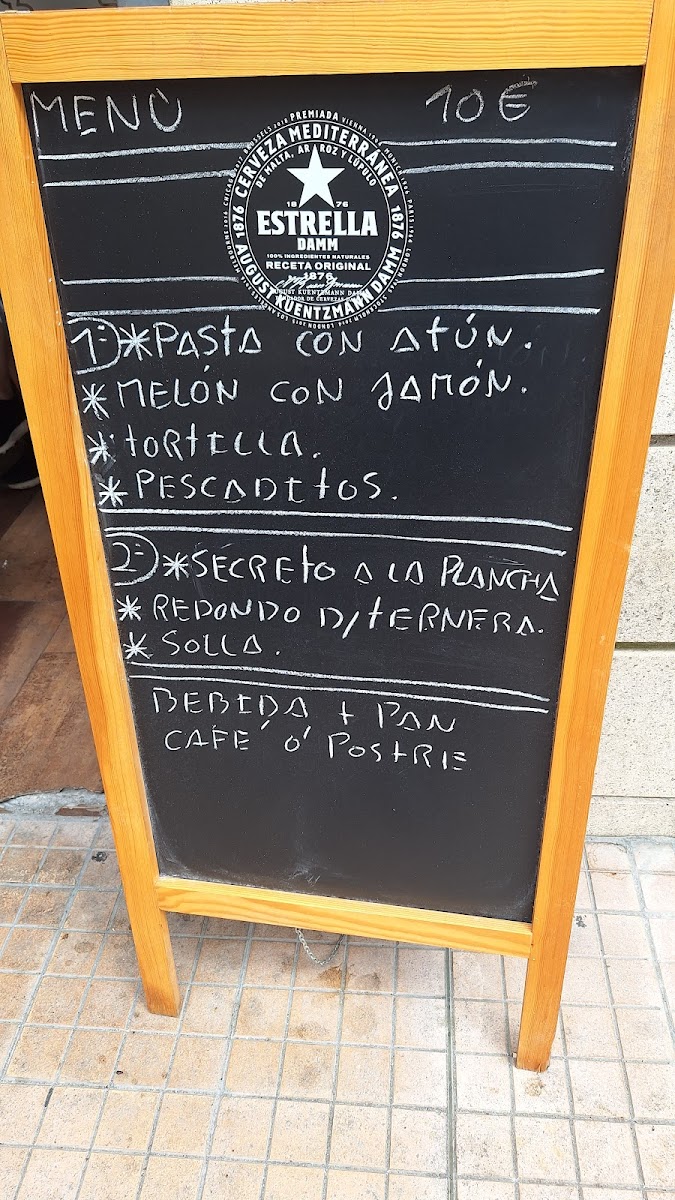 MENÚ 10€
PREMIADA
CERVEZA MEDITERRÁNEA
DE MALTA, ARROZ Y LÚPULO
1876
1876
18 76
ESTRELLA
DAMM
100% INGREDIENTES NATURALES
RECETA ORIGINAL
1876
AUGUST KUENTZMANN DAMM
1º) *PASTA CON ATÚN.
*MELÓN CON JAMÓN.
*TORTILLA.
*PESCADITOS.
2º) *SECRETO A LA PLANCHA
*REDONDO D/TERNERA.
*SOLLA.
BEBIDA + PAN
CAFÉ Ó POSTRE